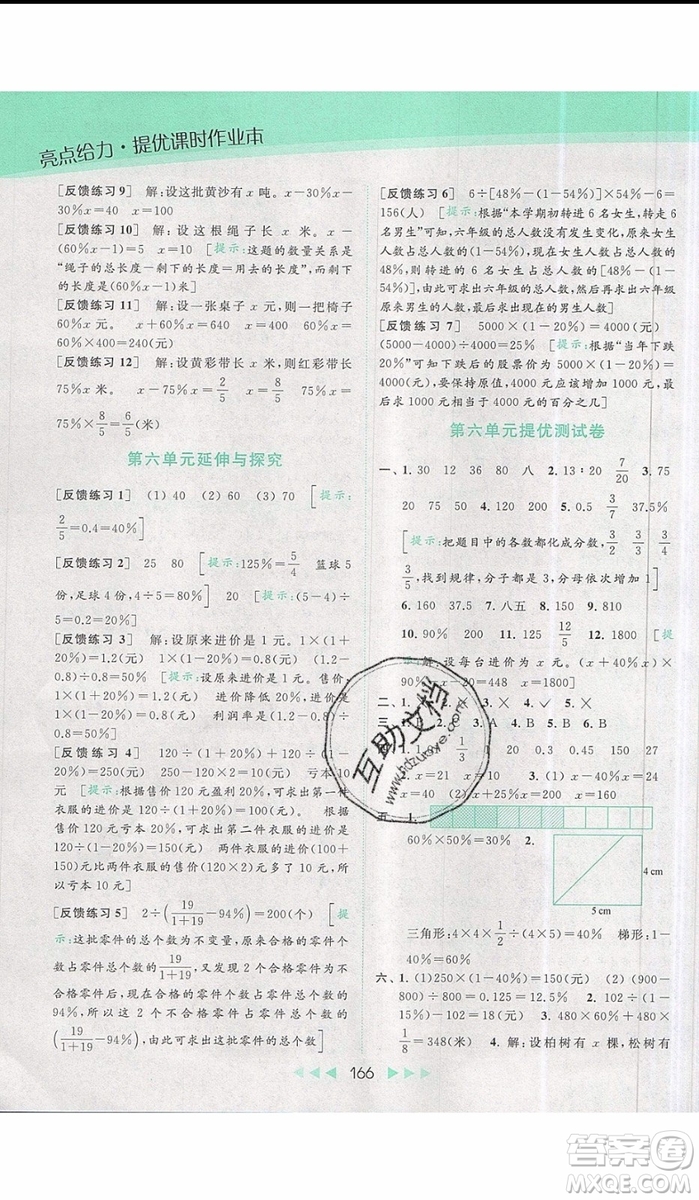 亮点给力·提优课时作业本
[反馈练习9] 解:设这批黄沙有 x 吨。 x-30%x-
30%x=40 x=100
[反馈练习 10] 解:设这根绳子长 x 米。 x-
(60%x-1)=5 x=10 [提示:这题的数量关系是
“绳子的总长度-剩下的长度=用去的长度”,而剩下
的长度是(60%x-1)米]
[反馈练习 11] 解:设一张桌子 x 元,则一把椅子
60%x 元。 x+60%x=640 x=400
60%×400=240(元)
[反馈练习 12] 解:设黄彩带长 x 米,则红彩带长
75%x 米。 x-75%x=2/5 x=8/5
75%×8/5=6/5(米)
第六单元延伸与探究
[反馈练习1] (1) 40 (2) 60 (3) 70 [提示:
2/5=0.4=40%]
[反馈练习 2] 25 80 [提示:125%=5/4 篮球5
份,足球4份,4÷5=80%] 20 [提示:(5-4)÷
5=0.2=20%]
[反馈练习 3] 解:设原来进价是1元。 1×(1+
20%)=1.2(元) 1×(1-20%)=0.8(元) (1.2-
0.8)÷0.8=50% [提示:设原来进价是1元,则售价
为1×(1+20%)=1.2(元) 进价降低 20%后,进价
为1×(1-20%)=0.8(元) 利润率是(1.2-0.8)÷
0.8=50%]
[反馈练习 4] 120÷(1+20%)+120÷(1-
20%)=250(元) 250-120×2=10(元) 亏本10
元 [提示:根据售价 120 元盈利 20%,可求出第一件
衣服的进价是 120÷(1+20%)=100(元)。根据售
价120元亏本 20%,可求出第二件衣服的进价是
120÷(1-20%)=150(元)。两件衣服的进价(100+
150)元比两件衣服的售价(120×2)元多10元,
所以亏本10元]
[反馈练习5] 2÷(19/1+19-94%)=200(个) [提
示:这批零件的总个数为不变量,原来合格的零件个
数占零件总个数的19/1+19,发现有 2 个合格零件为不
合格零件后,合格的零件个数占零件总个数的
94%,所以这 2 个不合格零件占零件总个数的
(19/1+19-94%),由此可求出这批零件的总个数]
[反馈练习 6] 6÷[48%-(1-54%)]×54%-6=
156(人) [提示:根据“本学期初转进6名女生,转走6
名男生”可知,六年级的总人数没有发生变化。原来女生
人数占总人数的(1-54%),现在女生人数占总人数的
48%,则转进的 6 名女生占总人数的[48%-(1-
54%)],由此可求出六年级的总人数,进而求出六年级
原来男生的人数和转走6名男生后的男生人数]
[反馈练习 7] 5000×(1-20%)=4000(元)
(5000-4000)÷4000=25% [提示:根据“当年下跌
20%”可知下跌后的股票价为 5000×(1-20%)=
4000(元),要保持原值,4000 元应该增加 1000 元,
求 1000 元相当于 4000 元的百分之几]
第六单元提优测试卷
一、1. 30 24 36 80 八 2. 13:20 7/20 3. 75
20 75 50 4. 120 5. 200 6. 3/7 37.5%
[提示:把题目中的各个数都化成分数,3/9 3/8 3/7 3/6
3/5,找到规律,分子不变,分母逐渐减1]
6. 160 37.5 7. 八五 8. 150 9. 810
10. 90% 200 11. 150 12/5 12. 1800 [提
示:解:设每台进价为 x 元。 (1+40%)x×
90%-x=468 x=1800]
二、1. ✓
三、1. A 2. B 3. A 4. A 5. B 6. B
1/3 1 20 0.3 0.45 150 27
x=21 x=30 3. (1) x-40%x=24
x=40 (2) x+25%x=200 x=160
五、1.
60%×50%=30% 2.
4 cm
5 cm
三角形:4×4×1/2÷(4×5)=40% 梯形:1-
40%=60%
六、1. (1)250×(1-40%)=150(元) (2)(900-
800)÷800=0.125=12.5% 2. 102×(1+
20%)-102=20.4(元) 3. 480×60%+480×
1/8=348(米) 4. 解:设柏树有 x 棵,松树有
166
互助文档
www.hdzuoye.com
答案圈
MXQE.COM